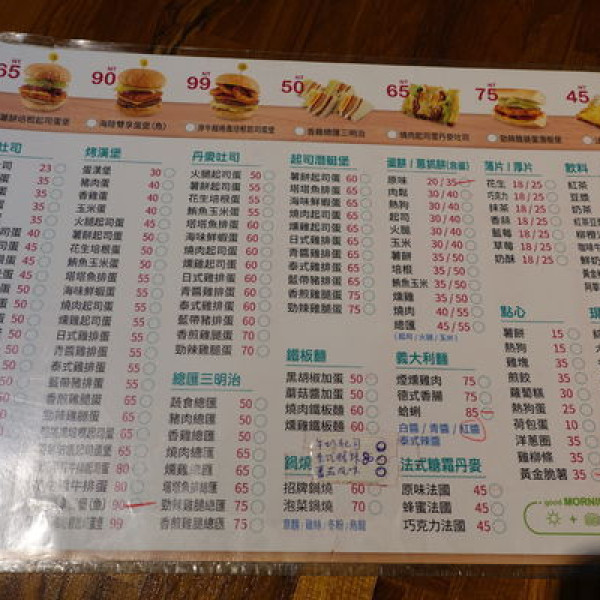 NT 65
NT 90
NT 99
NT 50
NT 65
NT 75
NT 45
薯餅培根起司蛋堡
海陸雙享蛋堡(魚)
香雞蛋總匯三明治
燒肉起司蛋丹麥吐司
吐司
23
35
35
35
40
烤漢堡
蛋漢堡 30
豬肉蛋 40
香雞蛋 40
玉米蛋 40
火腿起司蛋 45
薯餅起司蛋 50
花生培根蛋 50
鮪魚玉米蛋 55
塔塔魚排蛋 55
海味鮮蝦蛋 55
燒肉起司蛋 55
燻雞起司蛋 55
日式雞排蛋 55
青醬雞排蛋 55
泰式雞排蛋 55
藍帶豬排蛋 55
香煎雞腿蛋 65
勁辣雞腿蛋 65
65
65
90
90
(魚) 90
99
丹麥吐司
火腿起司蛋 50
薯餅起司蛋 55
花生培根蛋 55
鮪魚玉米蛋 55
塔塔魚排蛋 60
海味鮮蝦蛋 60
燒肉起司蛋 60
燻雞起司蛋 60
日式雞排蛋 60
青醬雞排蛋 60
泰式雞排蛋 60
藍帶豬排蛋 60
香煎雞腿蛋 70
勁辣雞腿蛋 70
總匯三明治
蔬食總匯 50
豬肉總匯 50
香雞總匯 50
培根總匯 55
燒肉總匯 65
燻雞總匯 65
塔塔魚排總匯 65
勁辣雞腿總匯 75
香煎雞腿總匯 75
起司潛艇堡
薯餅起司蛋 60
塔塔魚排蛋 65
海味鮮蝦蛋 65
燒肉起司蛋 65
燻雞起司蛋 65
日式雞排蛋 65
青醬雞排蛋 65
泰式雞排蛋 65
藍帶豬排蛋 65
香煎雞腿蛋 75
勁辣雞腿蛋 75
鐵板麵
黑胡椒加蛋 50
蘑菇醬加蛋 50
燒肉鐵板麵 60
燻雞鐵板麵 60
牛奶起司
80
鍋燒
招牌鍋燒 60
泡菜鍋燒 70
意麵 / 雞絲 / 冬粉 / 烏龍
蛋餅 / 蔥抓餅(含蛋)
原味 20 / 35
肉鬆 30 / 40
熱狗 30 / 40
起司 30 / 40
火腿 30 / 40
玉米 30 / 40
薯餅 35 / 50
培根 35 / 50
鮪魚玉米 35 / 50
燻雞 35 / 50
燒肉 40 / 55
總匯 45 / 55
(起司 / 火腿 / 玉米)
義大利麵
煙燻雞肉 75
德式香腸 75
蛤蜊 85
白醬 / 青醬 / 紅醬
泰式辣醬
法式糖霜丹麥
原味法國 45
蜂蜜法國 45
巧克力法國 45
薄片 / 厚片
花生 18 / 25
巧克力 18 / 25
抹茶 18 / 25
香蒜 18 / 25
藍莓 18 / 25
草莓 18 / 25
奶酥 18 / 25
點心
薯餅 15
熱狗 15
雞塊 35
煎餃 35
蘿蔔糕 30
熱狗蛋 25
荷包蛋 10
洋蔥圈 35
雞柳條 35
黃金脆薯 35
飲料
紅茶
豆漿
奶茶
good MORNIN